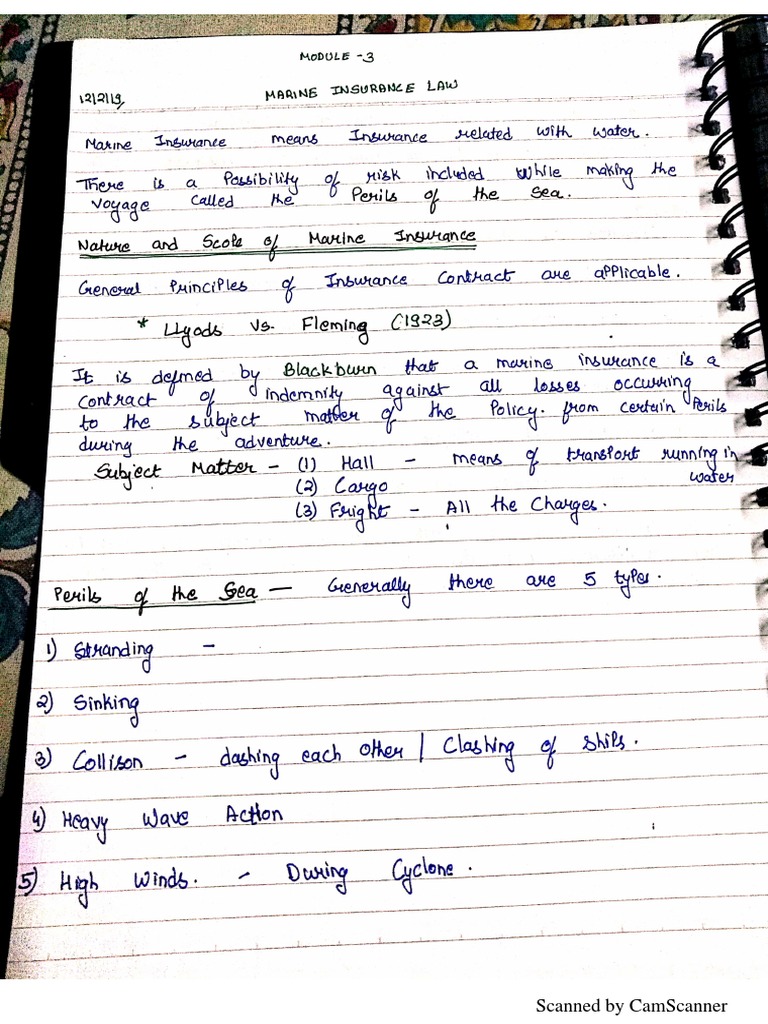 MODULE -3
12/2/19
MARINE INSURANCE LAW
Marine Insurance means Insurance related with water.
There is a Possibility of risk included while making the
voyage called the Perils of the Sea.
Nature and Scope of Marine Insurance
General Principles of Insurance Contract are applicable.
* Llyods vs. Fleming (1923)
It is defined by Blackburn that a marine insurance is a
contract of indemnity against all losses occurring
to the subject matter of the Policy. from certain Perils
during the adventure.
Subject Matter - (1) Hall - means of transport running in
water
(2) Cargo
(3) Fright - All the Charges.
Perils of the Sea — Generally there are 5 types.
1) Stranding -
2) Sinking
3) Collison - dashing each other / Clashing of ships.
4) Heavy Wave Action
5) High Winds. - During Cyclone.
Scanned by CamScanner